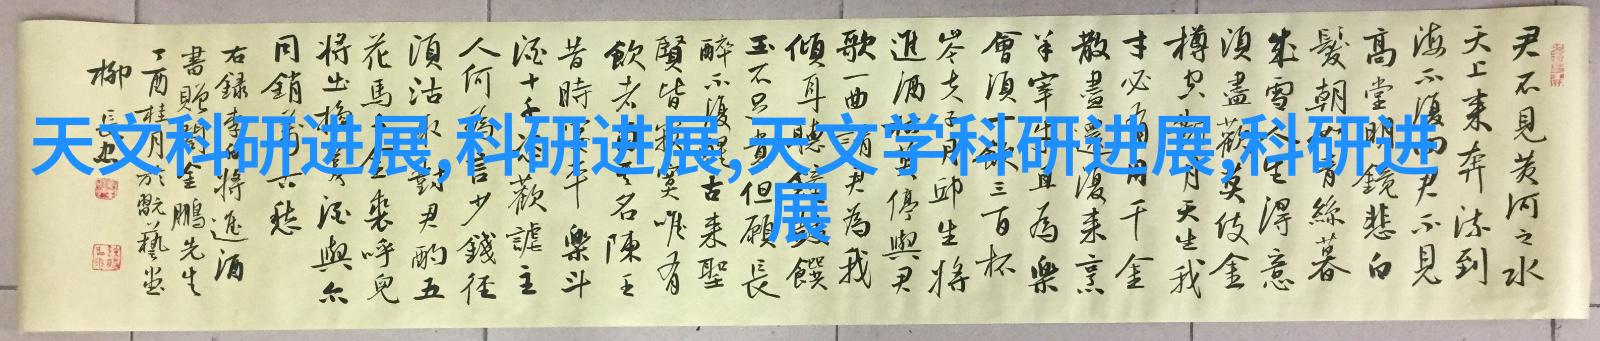 天文科研进展,科研进展,天文学科研进展,科研进
展
君不見黄河之水
天上来奔流到
海不復回君不見
高堂明鏡悲白
髮朝如青絲暮
成雪人生得意
須盡歡莫使金
樽空對月天生我
才必有用千金
散盡還復来烹
羊宰牛且為樂
會須一飲三百杯
岑夫子丹邱生將
進酒杯莫停與君
歌一曲請君為我
傾耳聽鐘鼓饌
玉不足貴但願長
醉不復醒古来聖
賢皆寂寞唯有
飲者留其名陳王
昔時宴平樂斗
酒十千恣歡謔主
人何為言少錢径
須沽取對君酌五
花馬千金裘呼兒
將出換美酒與尔
同銷萬古愁
右録李白將進酒
書贈金鵬先生
丁酉桂月於翫藝堂
柳長忠